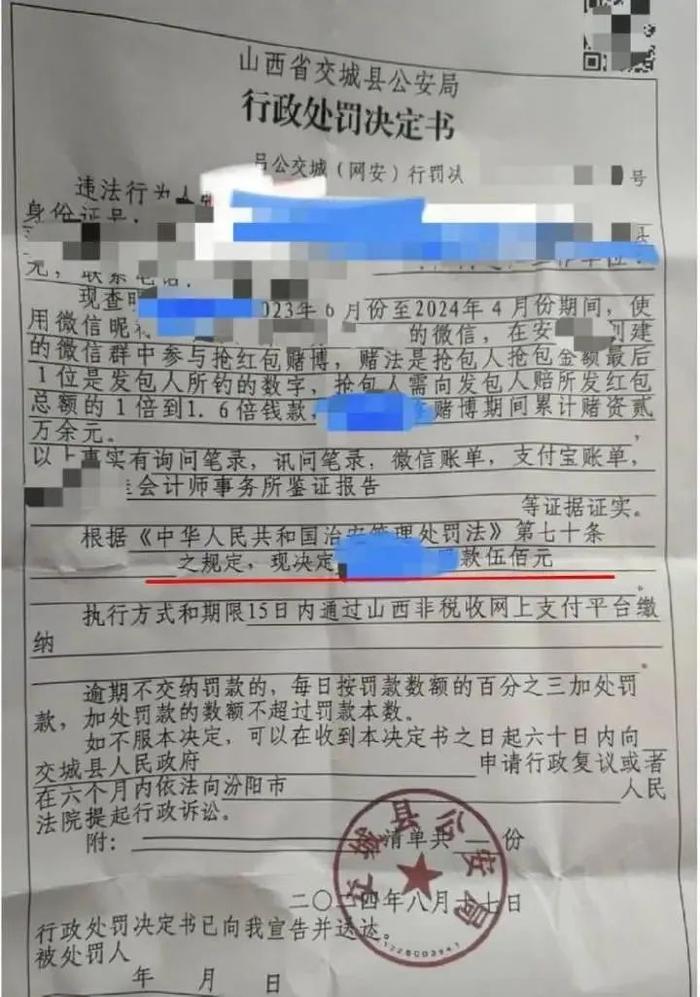 山西省交城县公安局
行政处罚决定书
公交城（网安）行罚决 号
违法行为人
身份证号
元，联系电话：
现查明 2023年6月份至2024年4月份期间，使
用微信昵称 的微信，在安 创建
的微信群中参与抢红包赌博，赌法是抢包人抢包金额最后
1位是发包人所钓的数字，抢包人需向发包人赔所发红包
总额的1倍到1.6倍钱款， 赌博期间累计赌资贰
万余元。
以上事实有询问笔录，讯问笔录，微信账单，支付宝账单，
会计师事务所鉴证报告
等证据证实。
根据《中华人民共和国治安管理处罚法》第七十条
之规定，现决定 款伍佰元
。
执行方式和期限15日内通过山西非税收网上支付平台缴
纳
。
逾期不交纳罚款的，每日按罚款数额的百分之三加处罚
款，加处罚款的数额不超过罚款本数。
如不服本决定，可以在收到本决定书之日起六十日内向
交城县人民政府 申请行政复议或者
在六个月内依法向汾阳市 人民
法院提起行政诉讼。
附： 清单共 份
交城县公安局
二〇二四年八月 七日
行政处罚决定书已向我宣告并送达。
被处罚人
年 月 日